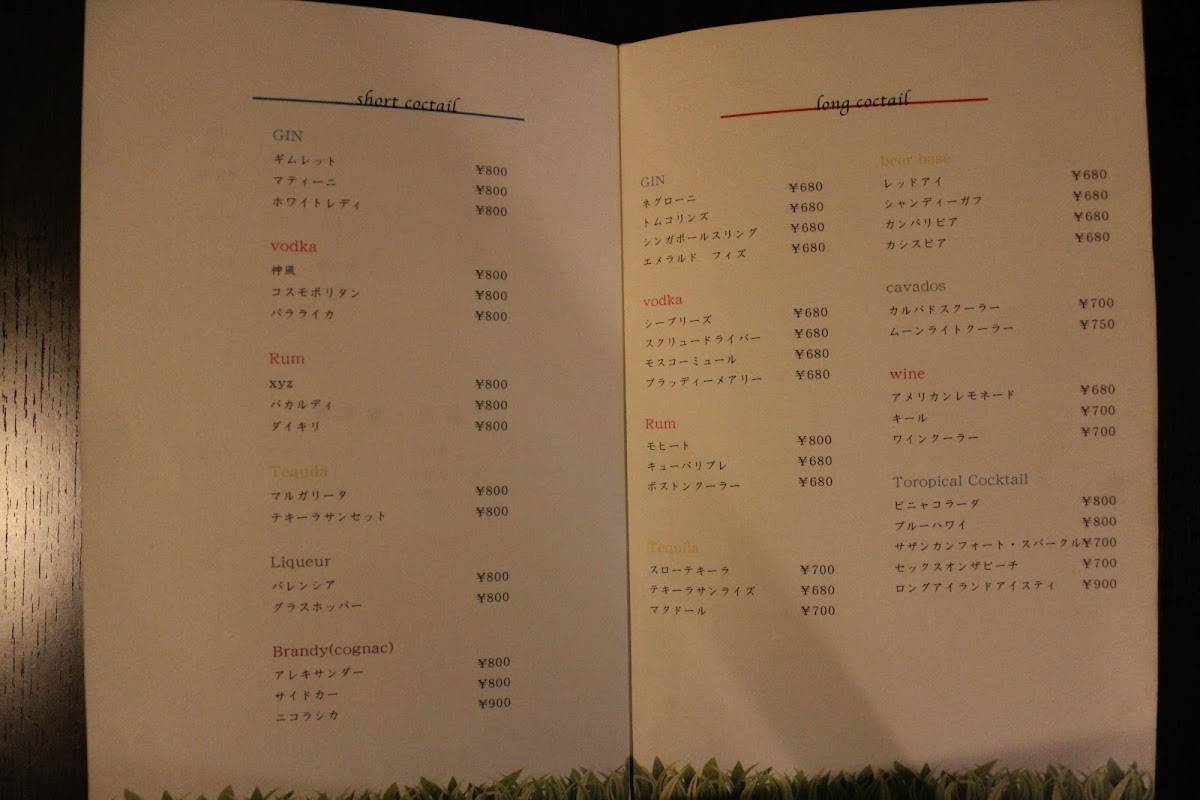 short coctail
GIN
ギムレット ¥800
マティーニ ¥800
ホワイトレディ ¥800
vodka
神風 ¥800
コスモポリタン ¥800
バラライカ ¥800
Rum
xyz ¥800
バカルディ ¥800
ダイキリ ¥800
Tequila
マルガリータ ¥800
テキーラサンセット ¥800
Liqueur
バレンシア ¥800
グラスホッパー ¥800
Brandy(cognac)
アレキサンダー ¥800
サイドカー ¥800
ニコラシカ ¥900
long coctail
GIN
ネグローニ ¥680
トムコリンズ ¥680
シンガポールスリング ¥680
エメラルド フィズ ¥680
vodka
シーブリーズ ¥680
スクリュードライバー ¥680
モスコーミュール ¥680
ブラッディーメアリー ¥680
Rum
モヒート ¥800
キューバリブレ ¥680
ボストンクーラー ¥680
Tequila
スローテキーラ ¥700
テキーラサンライズ ¥680
マタドール ¥700
beer base
レッドアイ ¥680
シャンディーガフ ¥680
カンパリビア ¥680
カシスビア ¥680
cavados
カルバドスクーラー ¥700
ムーンライトクーラー ¥750
wine
アメリカンレモネード ¥680
キール ¥700
ワインクーラー ¥700
Toropical Cocktail
ピニャコラーダ ¥800
ブルーハワイ ¥800
サザンカンフォート・スパークル¥700
セックスオンザビーチ ¥700
ロングアイランドアイスティ ¥900